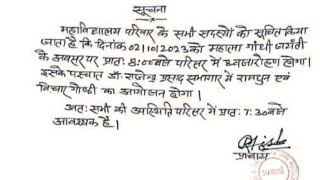 सूचना
महाविद्यालय परिवार के सभी सदस्यों को सूचित किया
जाता है कि दिनांक 02/10/2023 को महात्मा गाँधी जयंती
के अवसर पर प्रातः 8:00 बजे परिसर में ध्वजारोहण होगा।
इसके पश्चात डॉ. राजेन्द्र प्रसाद सभागार में रामधुन एवं
विचार गोष्ठी का आयोजन होगा।
अतः सभी की उपस्थिति परिसर में प्रातः 7:30 बजे
आवश्यक है।
प्राचार्य